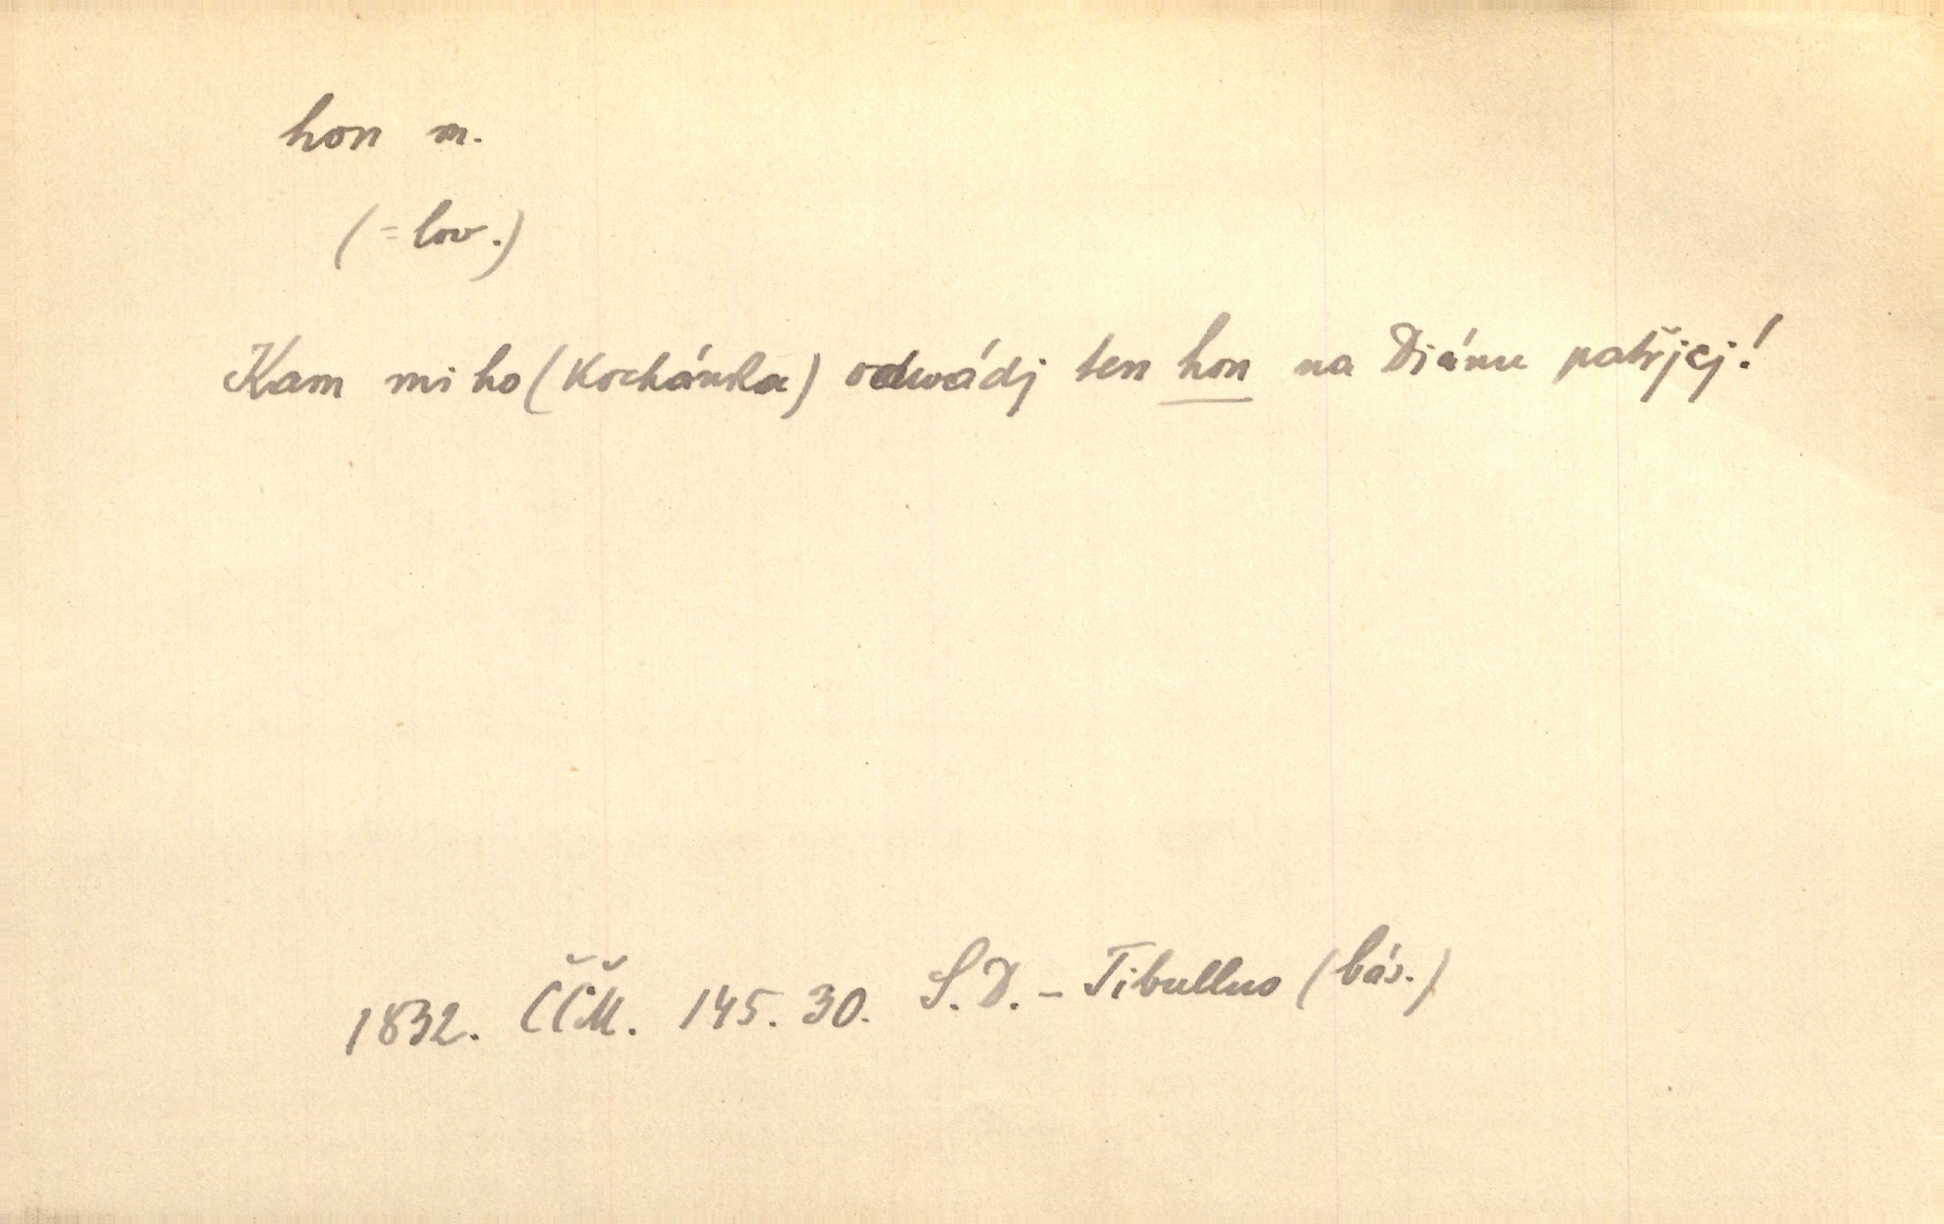 hon m.
(= lov.)
Kam mi ho (Kochánka) odwádj ten hon na Diánu patřjcj!
1832. ČČM. 145. 30. S. D. - Tibullus (bás.)